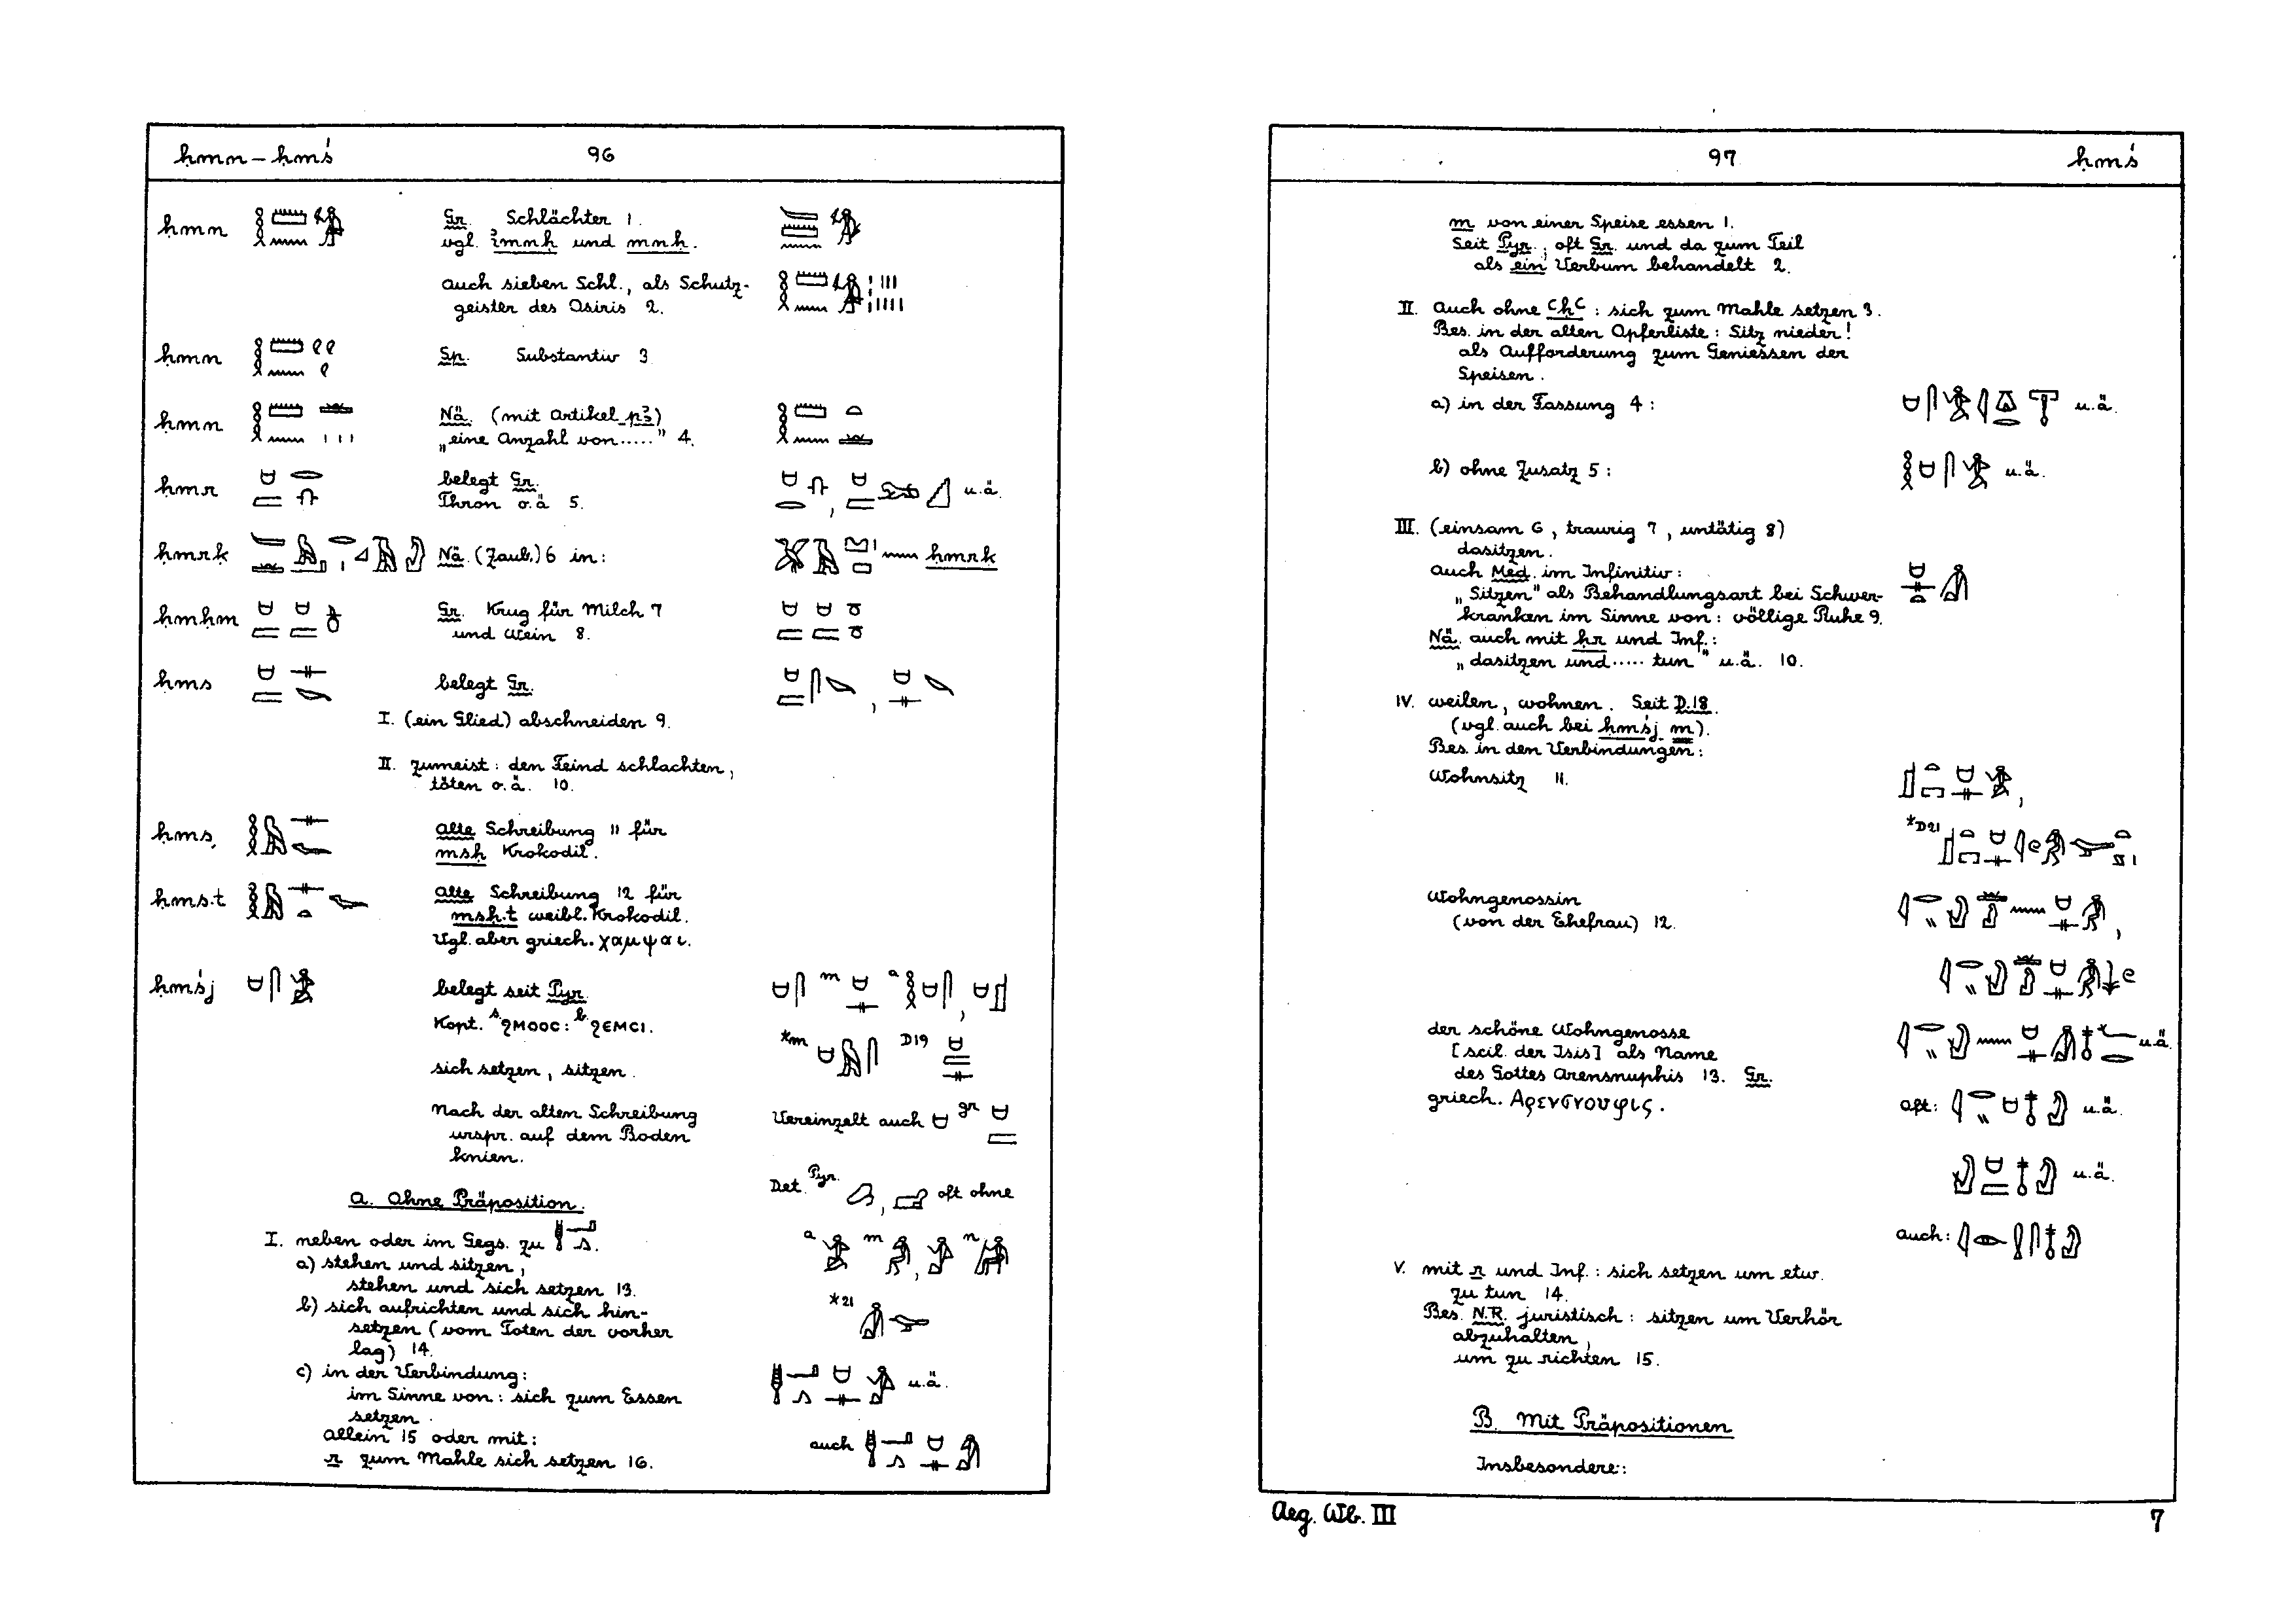 ḥmn – ḥmś 96
ḥmn Gr. Schlächter 1.
vgl. ỉmnḥ und mnḥ.
auch sieben Schl., als Schutz-
geister des Osiris 2.
ḥmn Sp. Substantiv 3
ḥmn Nä. (mit Artikel pꜣ)
„eine Anzahl von....." 4.
ḥmr belegt Gr.
Thron o.ä 5. u.ä.
ḥmrk Nä. (Zaub.) 6 in: ḥmrk
ḥmḥm Gr. Krug für Milch 7
und Wein 8.
ḥms belegt Gr.
I. (ein Glied) abschneiden 9.
II. zumeist: den Feind schlachten,
töten o.ä. 10.
ḥms, alte Schreibung 11 für
msḥ Krokodil.
ḥms.t alte Schreibung 12 für
msḥ.t weibl. Krokodil.
Vgl. aber griech. χαμψαι.
ḥmśj belegt seit Pyr. m a
Kopt. s. ϩⲙⲟⲟⲥ: b. ϩⲉⲙⲥⲓ.
*m D19
sich setzen, sitzen.
Nach der alten Schreibung
urspr. auf dem Boden
knien.
Vereinzelt auch gr
Det. Pyr. , oft ohne
a. Ohne Präposition.
I. neben oder im Gegs. zu . a m , n
a) stehen und sitzen,
stehen und sich setzen 13.
b) sich aufrichten und sich hin-
setzen (vom Toten der vorher
lag) 14.
*21
c) in der Verbindung: u.ä.
im Sinne von: sich zum Essen
setzen.
allein 15 oder mit: auch
r zum Mahle sich setzen 16.
97 ḥmś
m von einer Speise essen 1.
Seit Pyr., oft Gr. und da zum Teil
als ein Verbum behandelt 2.
II. Auch ohne ꜥḥꜥ: sich zum Mahle setzen 3.
Bes. in der alten Opferliste: Sitz nieder!
als Aufforderung zum Geniessen der
Speisen.
a) in der Fassung 4: u.ä.
b) ohne Zusatz 5: u.ä.
III. (einsam 6, traurig 7, untätig 8)
dasitzen.
Auch Med. im Infinitiv:
„Sitzen" als Behandlungsart bei Schwer-
kranken im Sinne von: völlige Ruhe 9.
Nä. auch mit ḥr und Inf.:
„dasitzen und..... tun" u.ä. 10.
IV. weilen, wohnen. Seit D.18.
(vgl. auch bei ḥmśj m).
Bes. in den Verbindungen:
Wohnsitz 11.
*D21
Wohngenossin
(von der Ehefrau) 12.
der schöne Wohngenosse u.ä.
[scil. der Isis] als Name
des Gottes Arensnuphis 13. Gr.
griech. Αρενσνουφις. oft: u.ä.
u.ä.
auch:
V. mit r und Inf.: sich setzen um etw.
zu tun 14.
Bes. N.R. juristisch: sitzen um Verhör
abzuhalten,
um zu richten 15.
B. Mit Präpositionen
Insbesondere:
Aeg. Wb. III 7